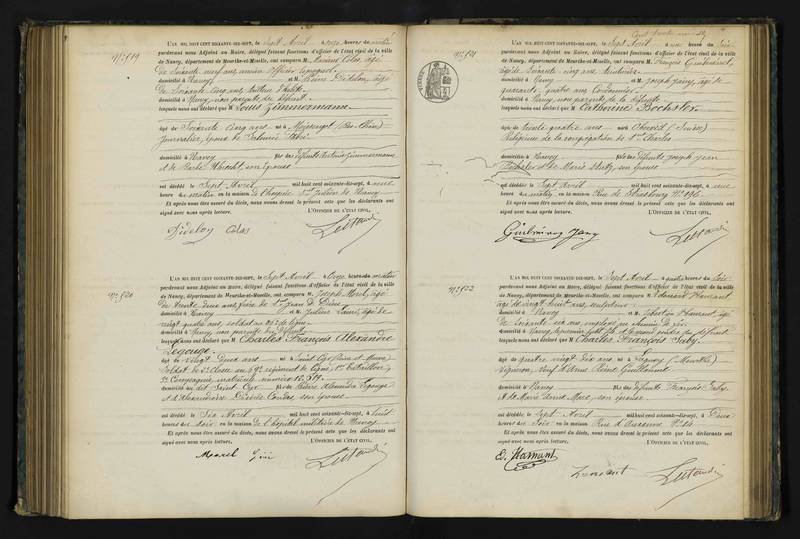 N° 519
L'AN MIL HUIT CENT SOIXANTE-DIX-SEPT, le Sept Avril à onze heures du matin
pardevant nous Adjoint au Maire, délégué faisant fonctions d'officier de l'état civil de la ville
de Nancy, département de Meurthe-et-Moselle, ont comparu M. Colas, âgé
de Soixante neuf ans, ancien officier
domicilié à Nancy et M. Didelon, âgé
de Soixante cinq ans
domicilié à Nancy, non parents du défunt
lesquels nous ont déclaré que M. Louis Zimmermann
âgé de Soixante cinq ans né à (Bas-Rhin)
journalier, époux de Salomé
domicilié à Nancy fils des défunts Zimmermann
et de son épouse
est décédé le Sept Avril mil huit cent soixante-dix-sept, à
heures du matin en la maison de l'hospice St Julien de Nancy
Et après nous être assuré du décès, nous avons dressé le présent acte que les déclarants ont
signé avec nous après lecture. L'OFFICIER DE L'ÉTAT CIVIL,
Didelon Colas
N° 520
L'AN MIL HUIT CENT SOIXANTE-DIX-SEPT, le Sept Avril à Onze heures du matin
pardevant nous Adjoint au Maire, délégué faisant fonctions d'officier de l'état civil de la ville
de Nancy, département de Meurthe-et-Moselle, ont comparu M. Joseph âgé
de trente deux ans, frère de St Jean de Dieu
domicilié à Nancy et M. Julien âgé de
vingt quatre ans, soldat au de ligne
domicilié à Nancy, non parents du défunt
lesquels nous ont déclaré que M. Charles François Alexandre
Legouge
âgé de Vingt deux ans né à Saint Cyr
Soldat de 2e classe au 69e régiment de ligne, 1er Bataillon,
Compagnie, matricule numéro
domicilié au dit Saint Cyr fils de Pierre Alexandre Legouge
et d'Alexandrine Désirée son épouse
est décédé le Six Avril mil huit cent soixante-dix-sept, à huit
heures du soir en la maison de l'hôpital militaire de Nancy
Et après nous être assuré du décès, nous avons dressé le présent acte que les déclarants ont
signé avec nous après lecture. L'OFFICIER DE L'ÉTAT CIVIL,
N° 521
L'AN MIL HUIT CENT SOIXANTE-DIX-SEPT, le Sept Avril à une heure du Soir
pardevant nous Adjoint au Maire, délégué faisant fonctions d'officier de l'état civil de la ville
de Nancy, département de Meurthe-et-Moselle, ont comparu M. François
âgé de Soixante cinq ans
domicilié à Nancy et M. Joseph Jany, âgé de
quarante quatre ans Cordonnier
domicilié à Nancy, non parents de la défunte
lesquels nous ont déclaré que M. Catherine Bochster
âgé de trente quatre ans née à
Religieuse de la congrégation de St Charles
domiciliée à Nancy fille des défunts Joseph Jean
et de Marie son épouse
est décédée le Sept Avril mil huit cent soixante-dix-sept, à une
heure du matin en la maison Rue de Strasbourg N° 196
Et après nous être assuré du décès, nous avons dressé le présent acte que les déclarants ont
signé avec nous après lecture. L'OFFICIER DE L'ÉTAT CIVIL,
Jany
N° 522
L'AN MIL HUIT CENT SOIXANTE-DIX-SEPT, le Sept Avril à quatre heures du Soir
pardevant nous Adjoint au Maire, délégué faisant fonctions d'officier de l'état civil de la ville
de Nancy, département de Meurthe-et-Moselle, ont comparu M. Edouard Hamant
âgé de vingt huit ans, sculpteur
domicilié à Nancy et M. Sébastien âgé
de Soixante six ans employé au chemin de fer
domicilié à Nancy, le premier petit fils et le second du défunt
lesquels nous ont déclaré que M. Charles François Saby
âgé de quatre vingt dix ans né à Lagney (Meurthe)
Vigneron, veuf d'Anne Reine Guillaume
domicilié à Nancy fils des défunts François Saby
et de Marie son épouse
est décédé le Sept Avril mil huit cent soixante-dix-sept, à Deux
heures du Soir en la maison Rue d'Auxonne N° 14
Et après nous être assuré du décès, nous avons dressé le présent acte que les déclarants ont
signé avec nous après lecture. L'OFFICIER DE L'ÉTAT CIVIL,
E. Hamant